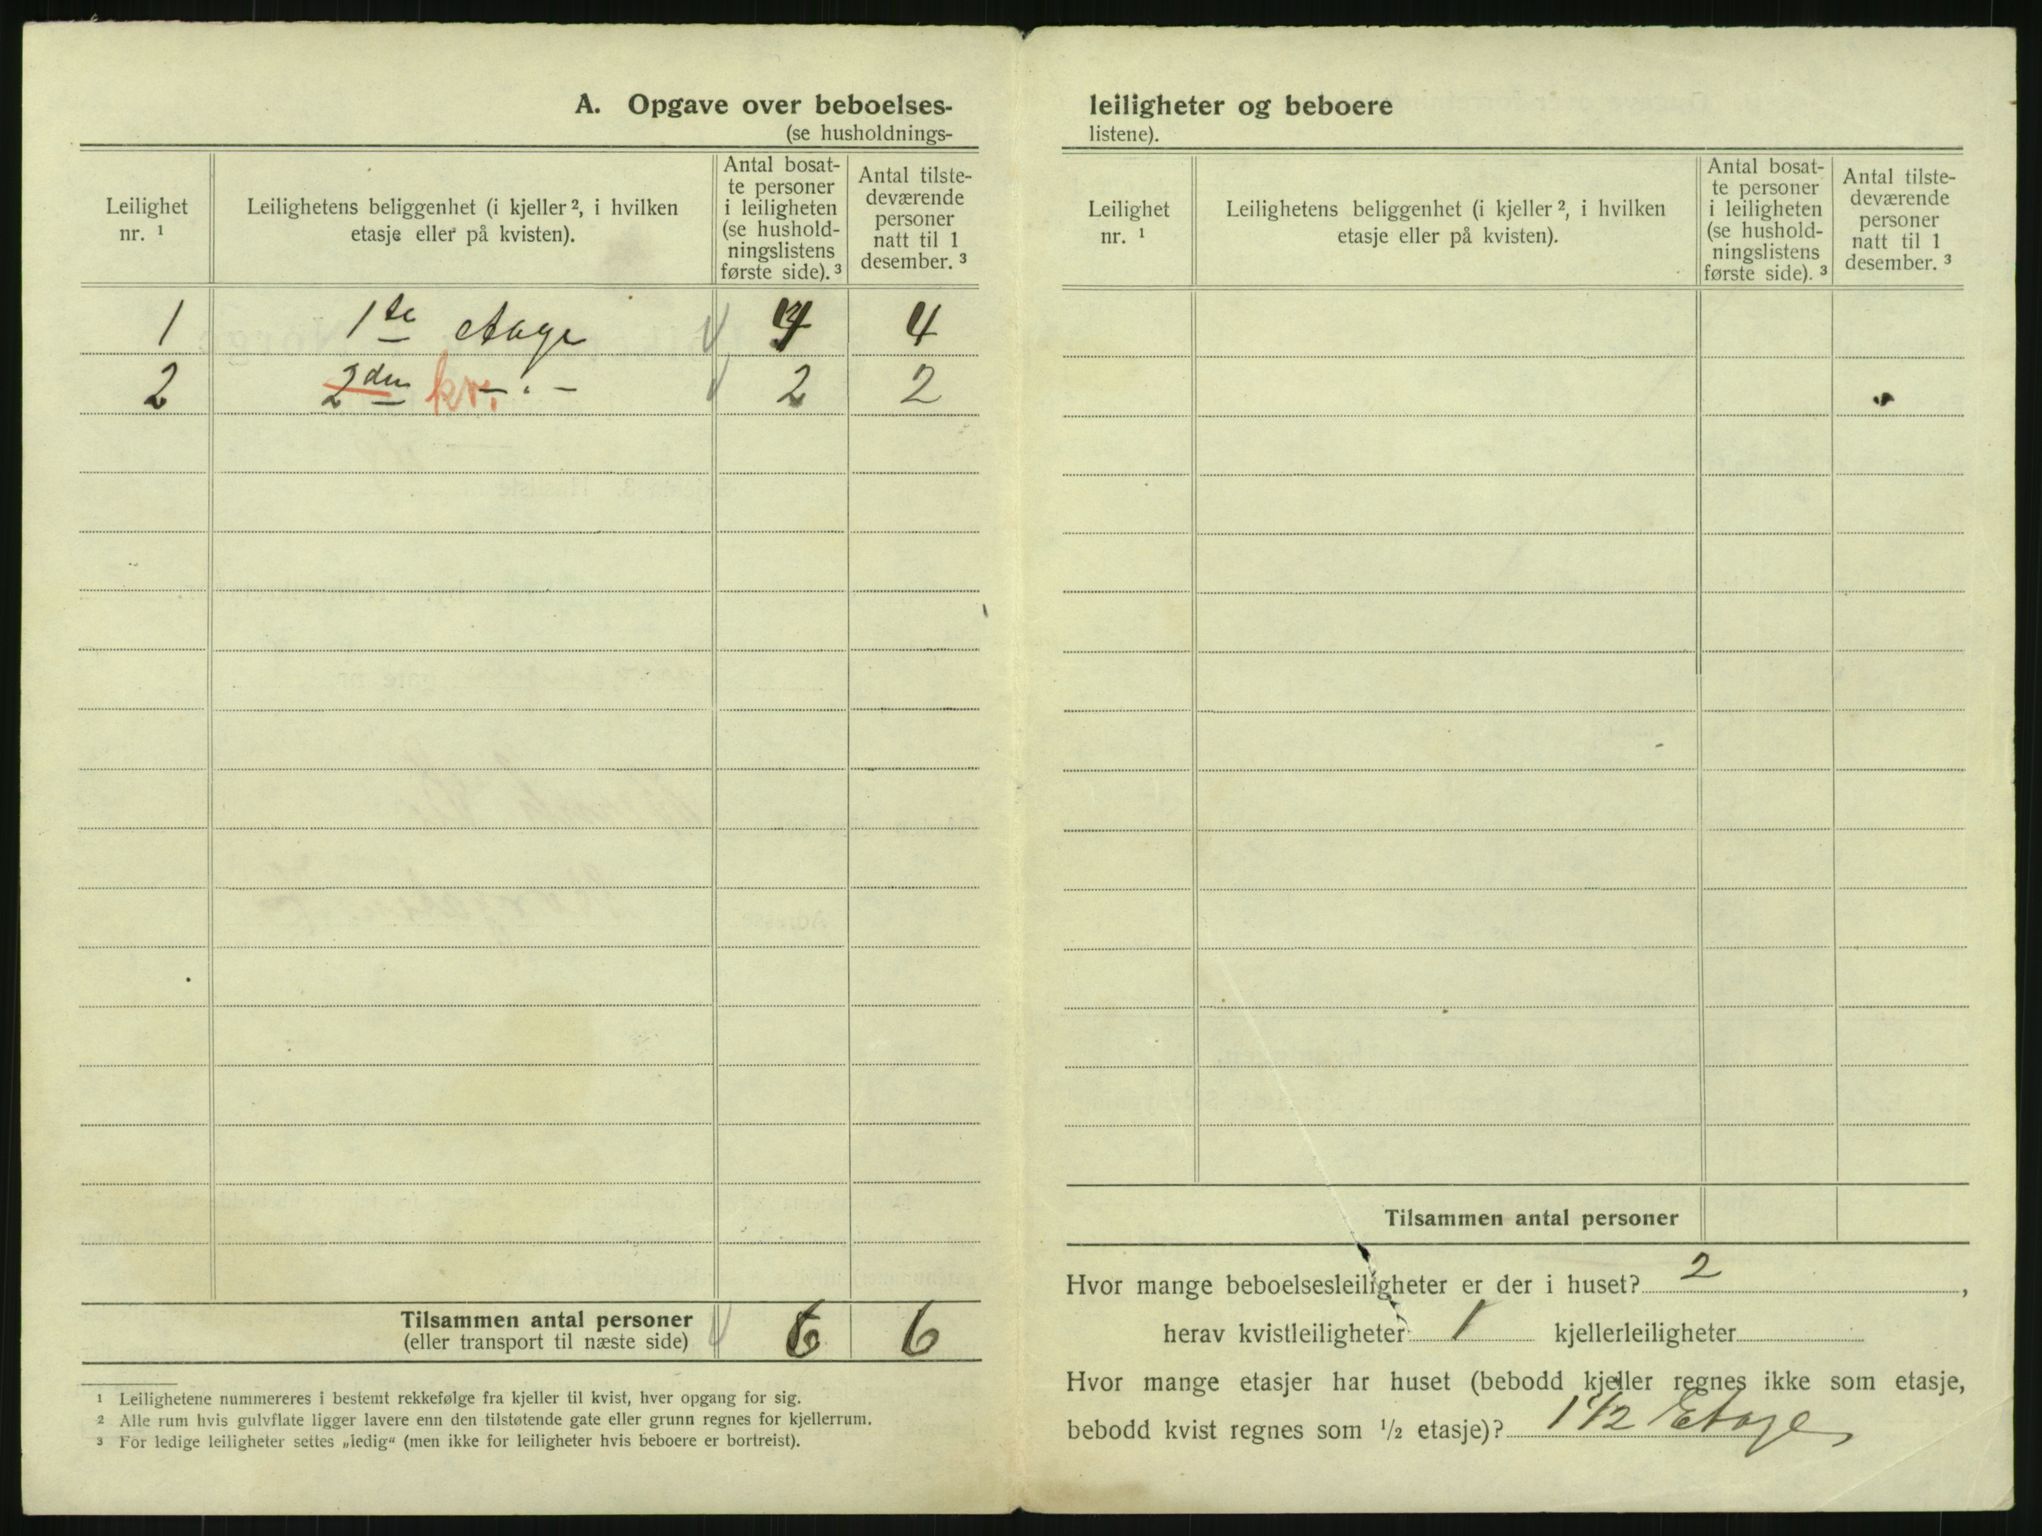 A. Opgave over beboelses-
(se husholdnings-
Leilighet
nr. ¹
Leilighetens beliggenhet (i kjeller ², i hvilken
etasje eller på kvisten).
Antal bosat-
te personer
i leiligheten
(se hushold-
ningslistens
første side). ³
Antal tilste-
deværende
personer
natt til 1
desember. ³
1 1te etage 4 4
2 2den kv. — " — 2 2
Tilsammen antal personer
(eller transport til næste side) 6 6
¹ Leilighetene nummereres i bestemt rekkefølge fra kjeller til kvist, hver opgang for sig.
² Alle rum hvis gulvflate ligger lavere enn den tilstøtende gate eller grunn regnes for kjellerrum.
³ For ledige leiligheter settes „ledig“ (men ikke for leiligheter hvis beboere er bortreist).
leiligheter og beboere
listene).
Leilighet
nr. ¹
Leilighetens beliggenhet (i kjeller ², i hvilken
etasje eller på kvisten).
Antal bosat-
te personer
i leiligheten
(se hushold-
ningslistens
første side). ³
Antal tilste-
deværende
personer
natt til 1
desember. ³
Tilsammen antal personer
Hvor mange beboelsesleiligheter er der i huset? 2,
herav kvistleiligheter 1 kjellerleiligheter
Hvor mange etasjer har huset (bebodd kjeller regnes ikke som etasje,
bebodd kvist regnes som ½ etasje)? 1 1/2 Etage